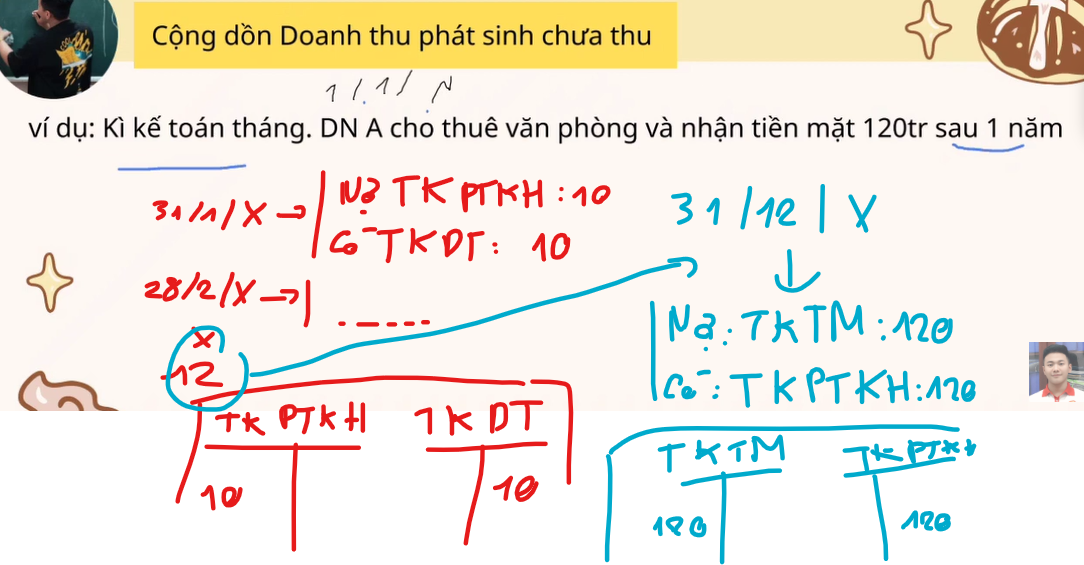 Cộng dồn Doanh thu phát sinh chưa thu
1/1/N
ví dụ: Kì kế toán tháng. DN A cho thuê văn phòng và nhận tiền mặt 120tr sau 1 năm
31/1/X → Nợ TK PTKH: 10
Có TK DT: 10
28/2/X →
x
12
TK PTKH TK DT
10 10
31/12/X
Nợ: TKTM: 120
Có: TKPTKH: 120
TKTM TK PTKH
120 120